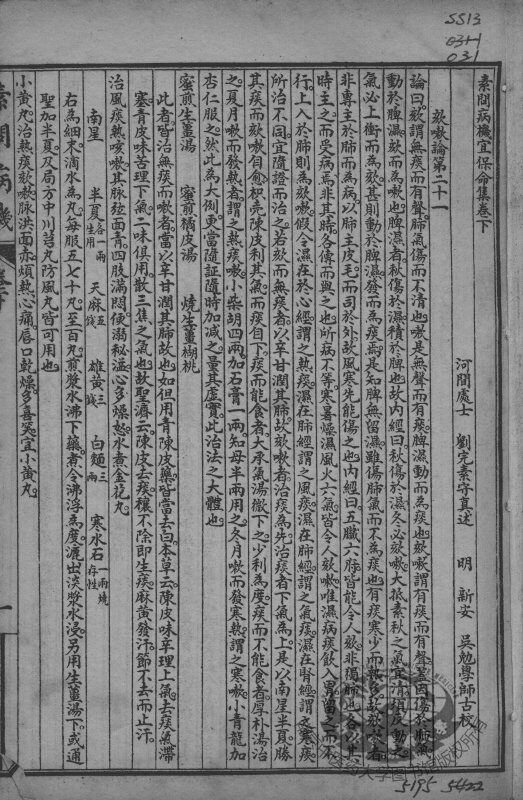 5513
0344
031
素問病機宜保命集卷下
河間處士　劉完素守真述　明　新安　吳勉學師古校
欬嗽論第二十一
論曰欬謂無痰而有聲肺氣傷而不清也嗽是無聲而有痰脾濕動而為痰也欬嗽謂有痰而有聲蓋因傷於肺氣
動於脾濕欬而為嗽也脾濕者秋傷於濕積於脾也故內經曰秋傷於濕冬必欬嗽大抵素秋之氣宜清
氣必上衝而為欬甚則動於脾濕發而為痰焉是知脾無留濕雖傷肺氣而不為痰也有痰寒少而熱多故欬嗽者
非專主於肺而為病以肺主皮毛而司於外故風寒先能傷之也內經曰五臟六腑皆能令人欬非獨肺也各以其
時主之而受病焉非其時各傳而與之也所病不等寒暑燥濕風火六氣皆令人欬嗽唯濕病痰飲入胃留之而不
行上入於肺則為欬嗽假令濕在於心經謂之熱痰濕在肝經謂之風痰濕在肺經謂之氣痰濕在腎經謂之寒痰
所治不同宜隨證而治之若欬而無痰者以辛甘潤其肺故欬嗽者治痰為先治痰者下氣為上是以南星半夏勝
其痰而欬嗽自愈枳殼陳皮利其氣而痰自下痰而能食者大承氣湯微下之少利為度痰而不能食者厚朴湯治
之夏月嗽而發熱者謂之熱痰嗽小柴胡四兩加石膏一兩知母半兩用之冬月嗽而發寒熱謂之寒嗽小青龍加
杏仁服之然此為大例更當隨証隨時加減之量其虛實此治法之大體也
蜜煎生薑湯　蜜煎橘皮湯　燒生薑胡桃
此者皆治無痰而嗽者當以辛甘潤其肺故也如但用青陳皮藥皆當去白本草云陳皮味辛理上氣去痰氣滯
塞青皮味苦理下氣二味俱用散三焦之氣也故聖濟云陳皮去痰穰不除即生痰麻黃發汗節不去而止汗
治風痰熱咳嗽其脈弦面青四肢滿悶便溺秘澁心多燥怒水煮金花丸
南星　半夏各一兩生用　天麻五錢　雄黃三錢　白麵三兩　寒水石一兩燒存性
右為細末滴水為丸每服五七十丸至百丸煎漿水沸下藥煮令沸浮為度漉出淡漿水浸另用生薑湯下或通
聖加半夏及局方中川芎丸防風丸皆可用也
小黃丸治熱痰欬嗽脈洪面赤煩熱心痛唇口乾燥多喜笑宜小黃丸
素問病機
卷下
一
5195 5422